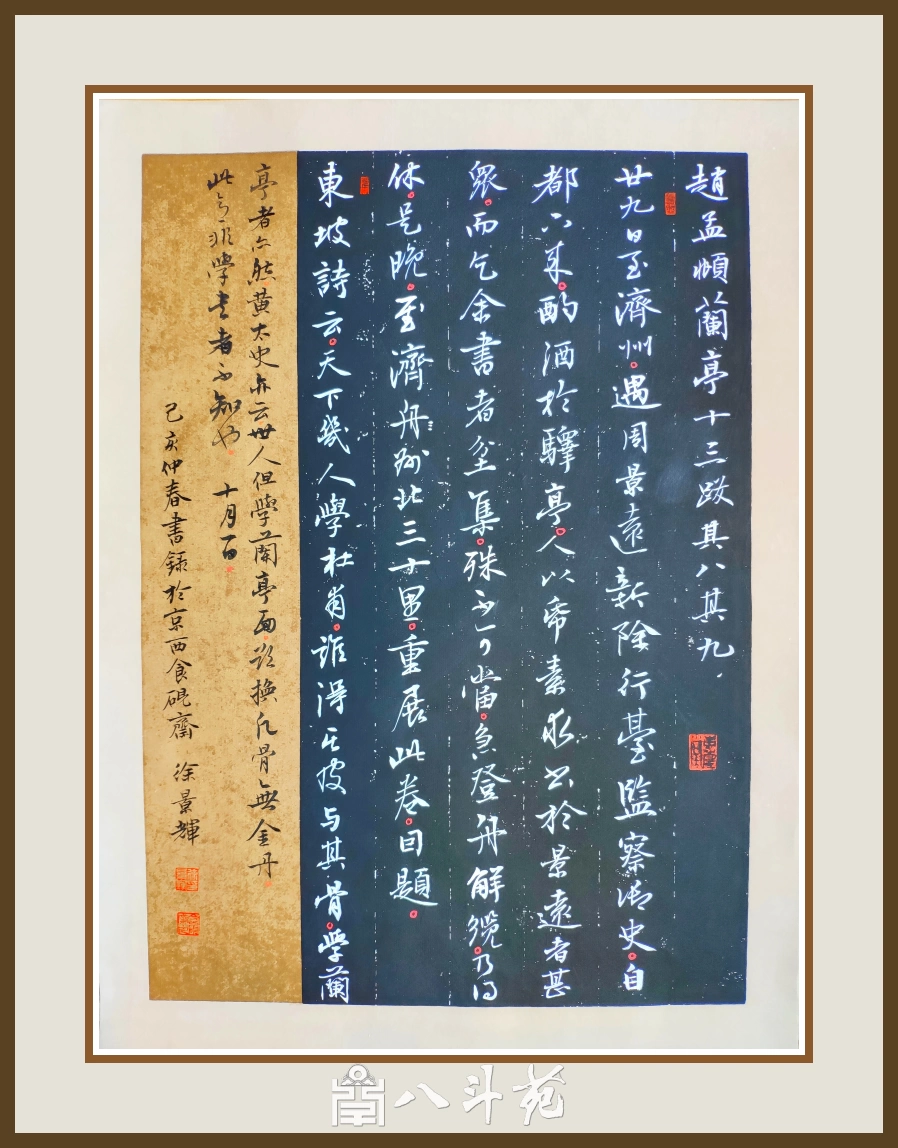 趙孟頫蘭亭十三跋其八其九
廿九日至濟州遇周景遠新除行臺監察御史自
都下來酌酒於驛亭人以帋素求書於景遠者甚
眾而乞余書者坌集殊不可當急登舟解纜乃得
休是晚至濟舟州北三十里重展此卷因題
東坡詩云天下幾人學杜甫誰得其皮与其骨學蘭
亭者亦然黃太史亦云世人但學蘭亭面欲換凡骨無金丹
此意非學書者不知也 十月一日
己亥仲春書錄於京西食硯齋 徐景輝
八斗苑